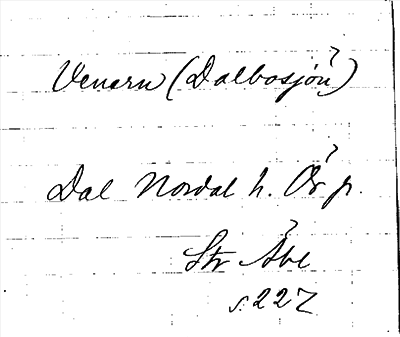 Venern (Dalbosjön)
Dal Nordal h. Ör p.
Str Åbl
s. 227